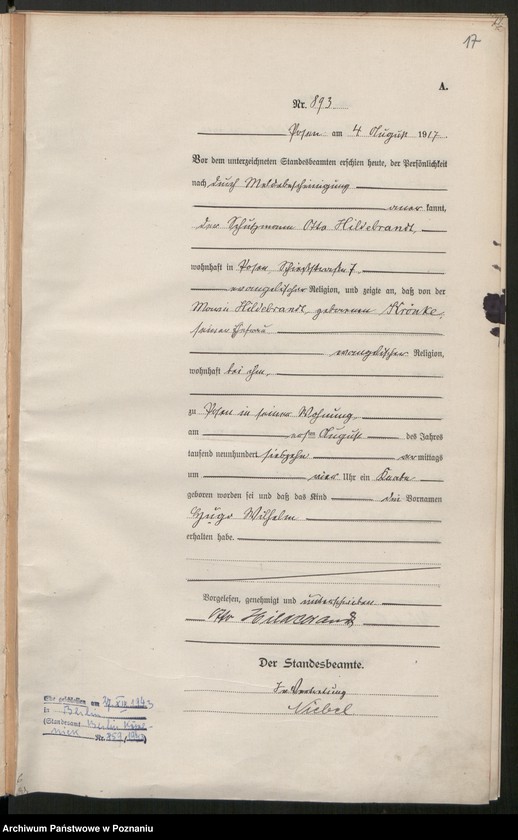 17
A.
Nr. 893
Posen am 4 August 1917
Vor dem unterzeichneten Standesbeamten erschien heute, der Persönlichkeit
nach durch Meldebescheinigung
aner kannt,
der Schutzmann Otto Hildebrandt,
wohnhaft in Posen, Schießstraße 7
evangelischer Religion, und zeigte an, daß von der
Maria Hildebrandt, geborenen Krönke,
seiner Ehefrau
evangelischer Religion,
wohnhaft bei ihm,
zu Posen in seiner Wohnung
am ersten August des Jahres
tausend neunhundert siebzehn vormittags
um vier Uhr ein Knabe
geboren worden sei und daß das Kind die Vornamen
Hugo Wilhelm
erhalten habe.
Vorgelesen, genehmigt und unterschrieben
Otto Hildebrandt
Der Standesbeamte.
In Vertretung
Niebel
Ehe geschlossen am 27. XII 1943
in Berlin
(Standesamt Berlin Köpe-
nick Nr. 859/1943)
Archiwum Państwowe w Poznaniu